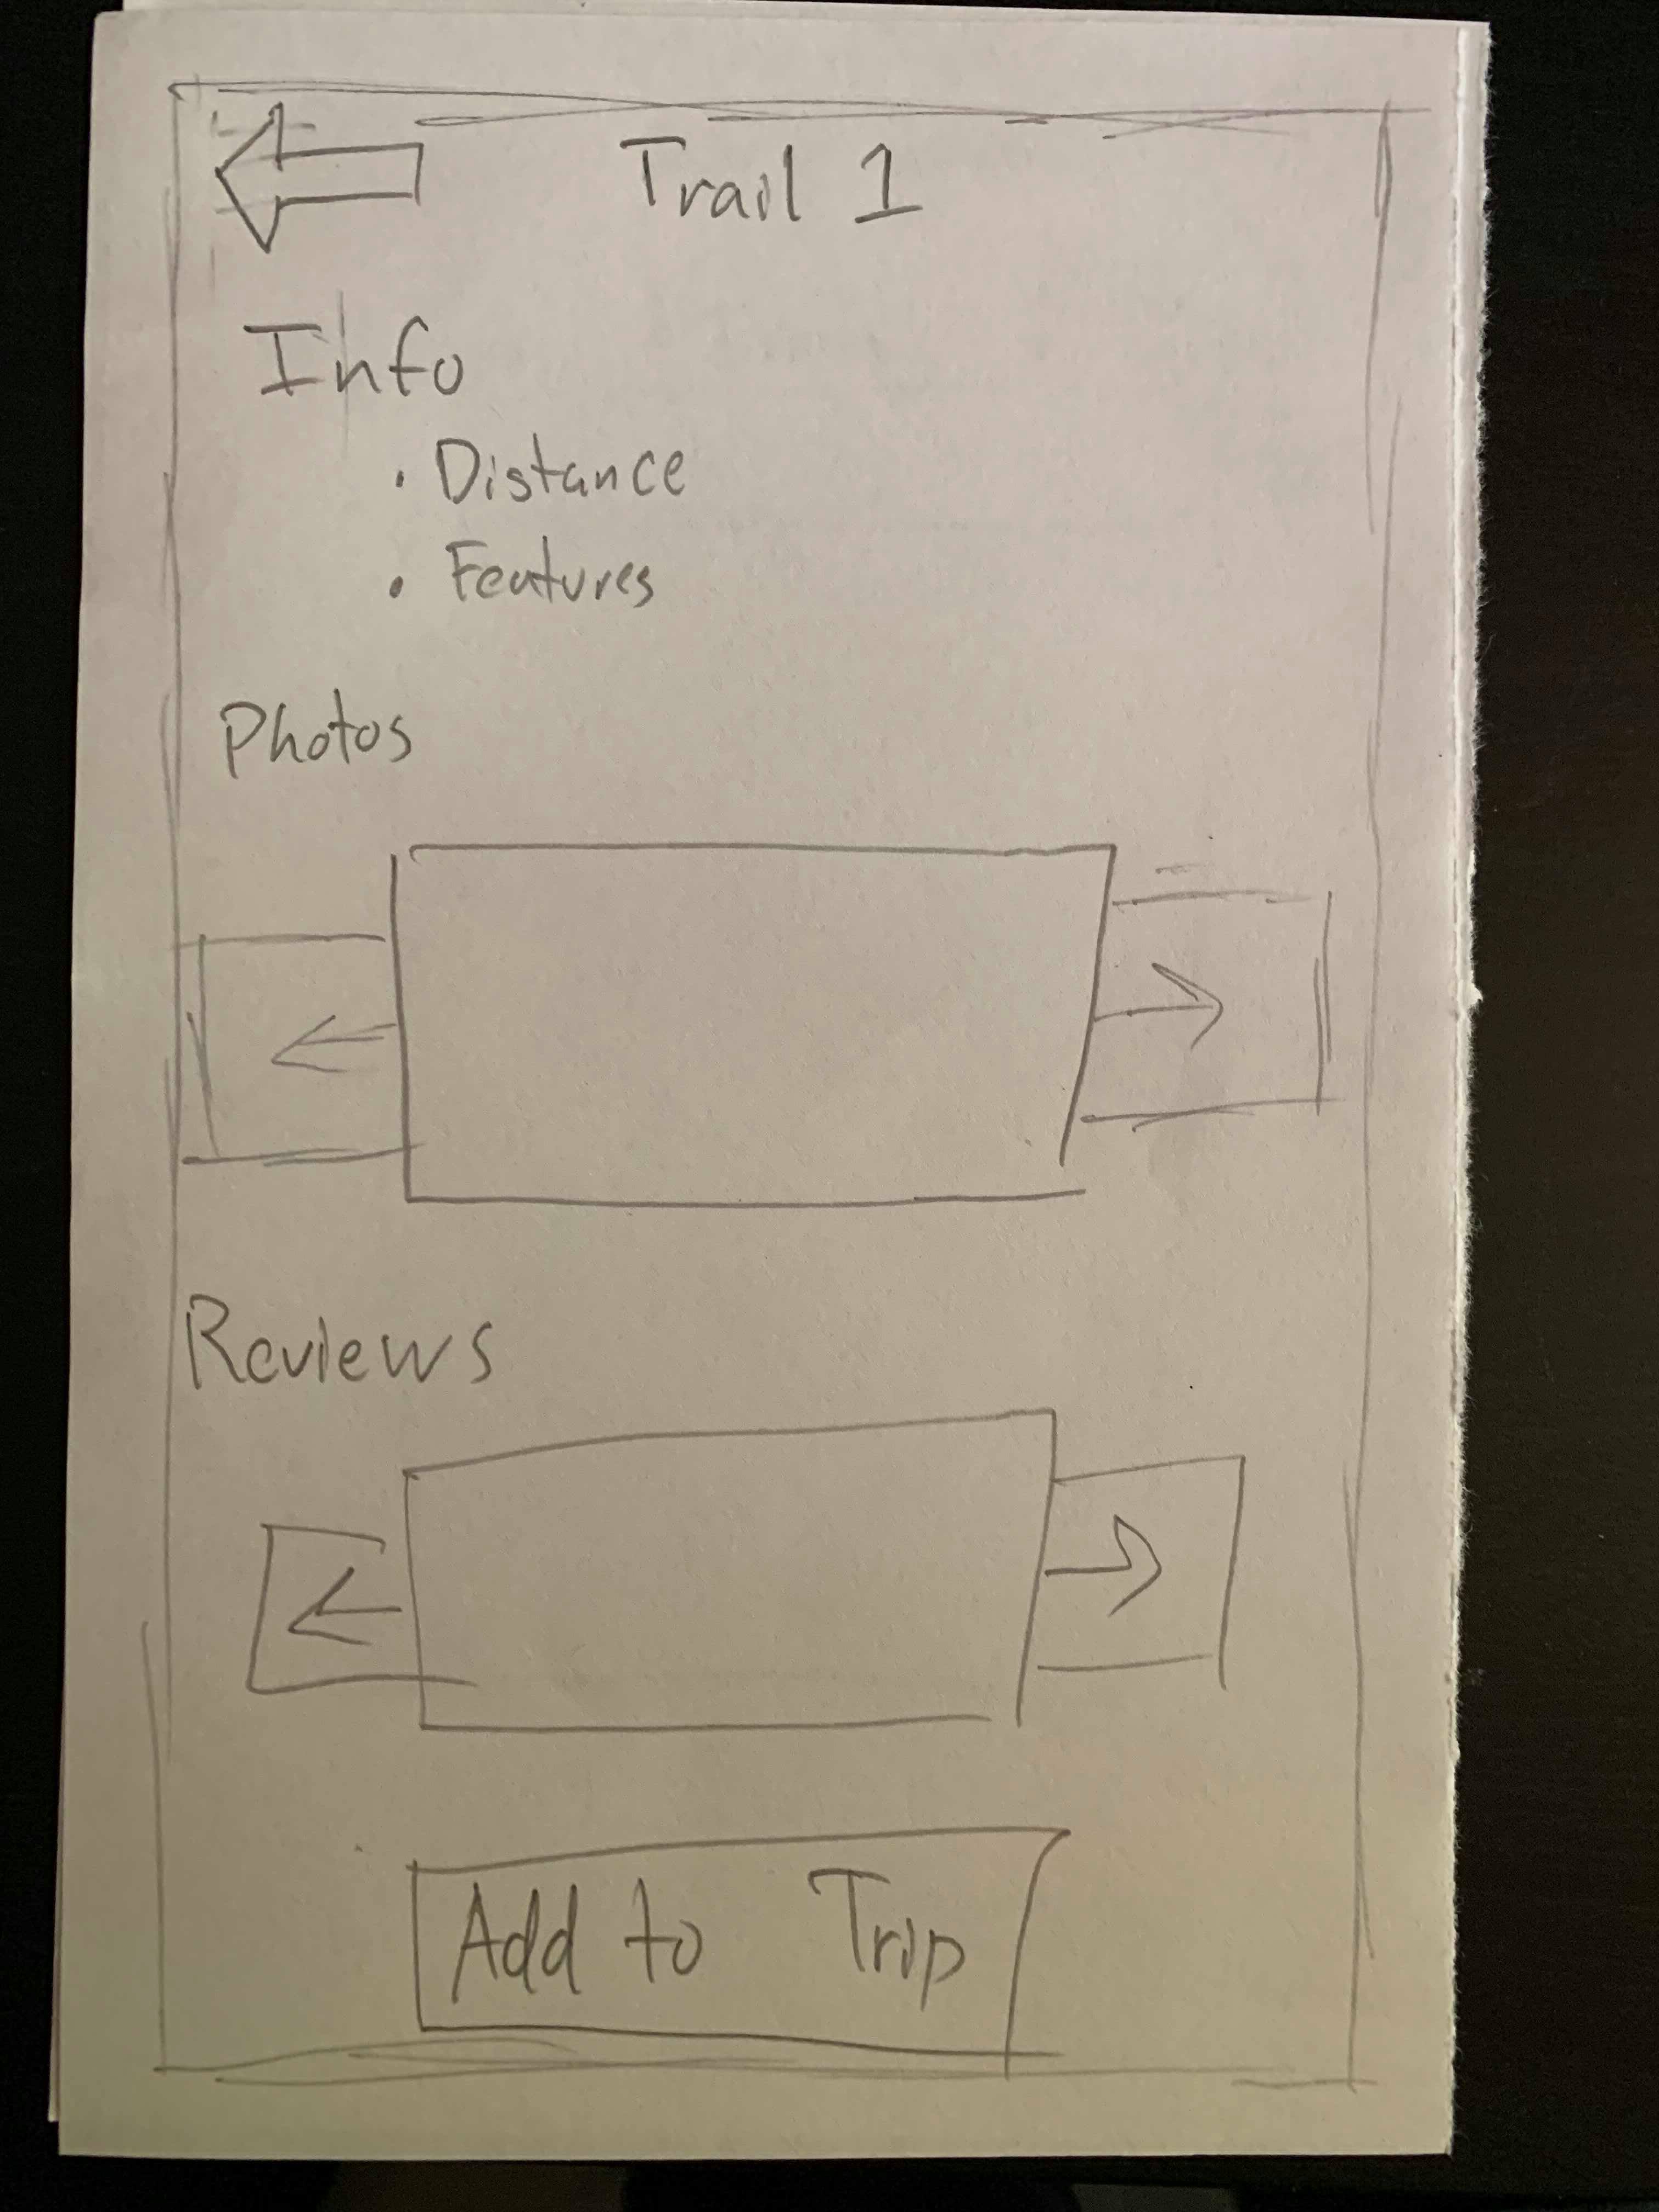 Trail 1
Info
• Distance
• Features
Photos
Reviews
Add to Trip